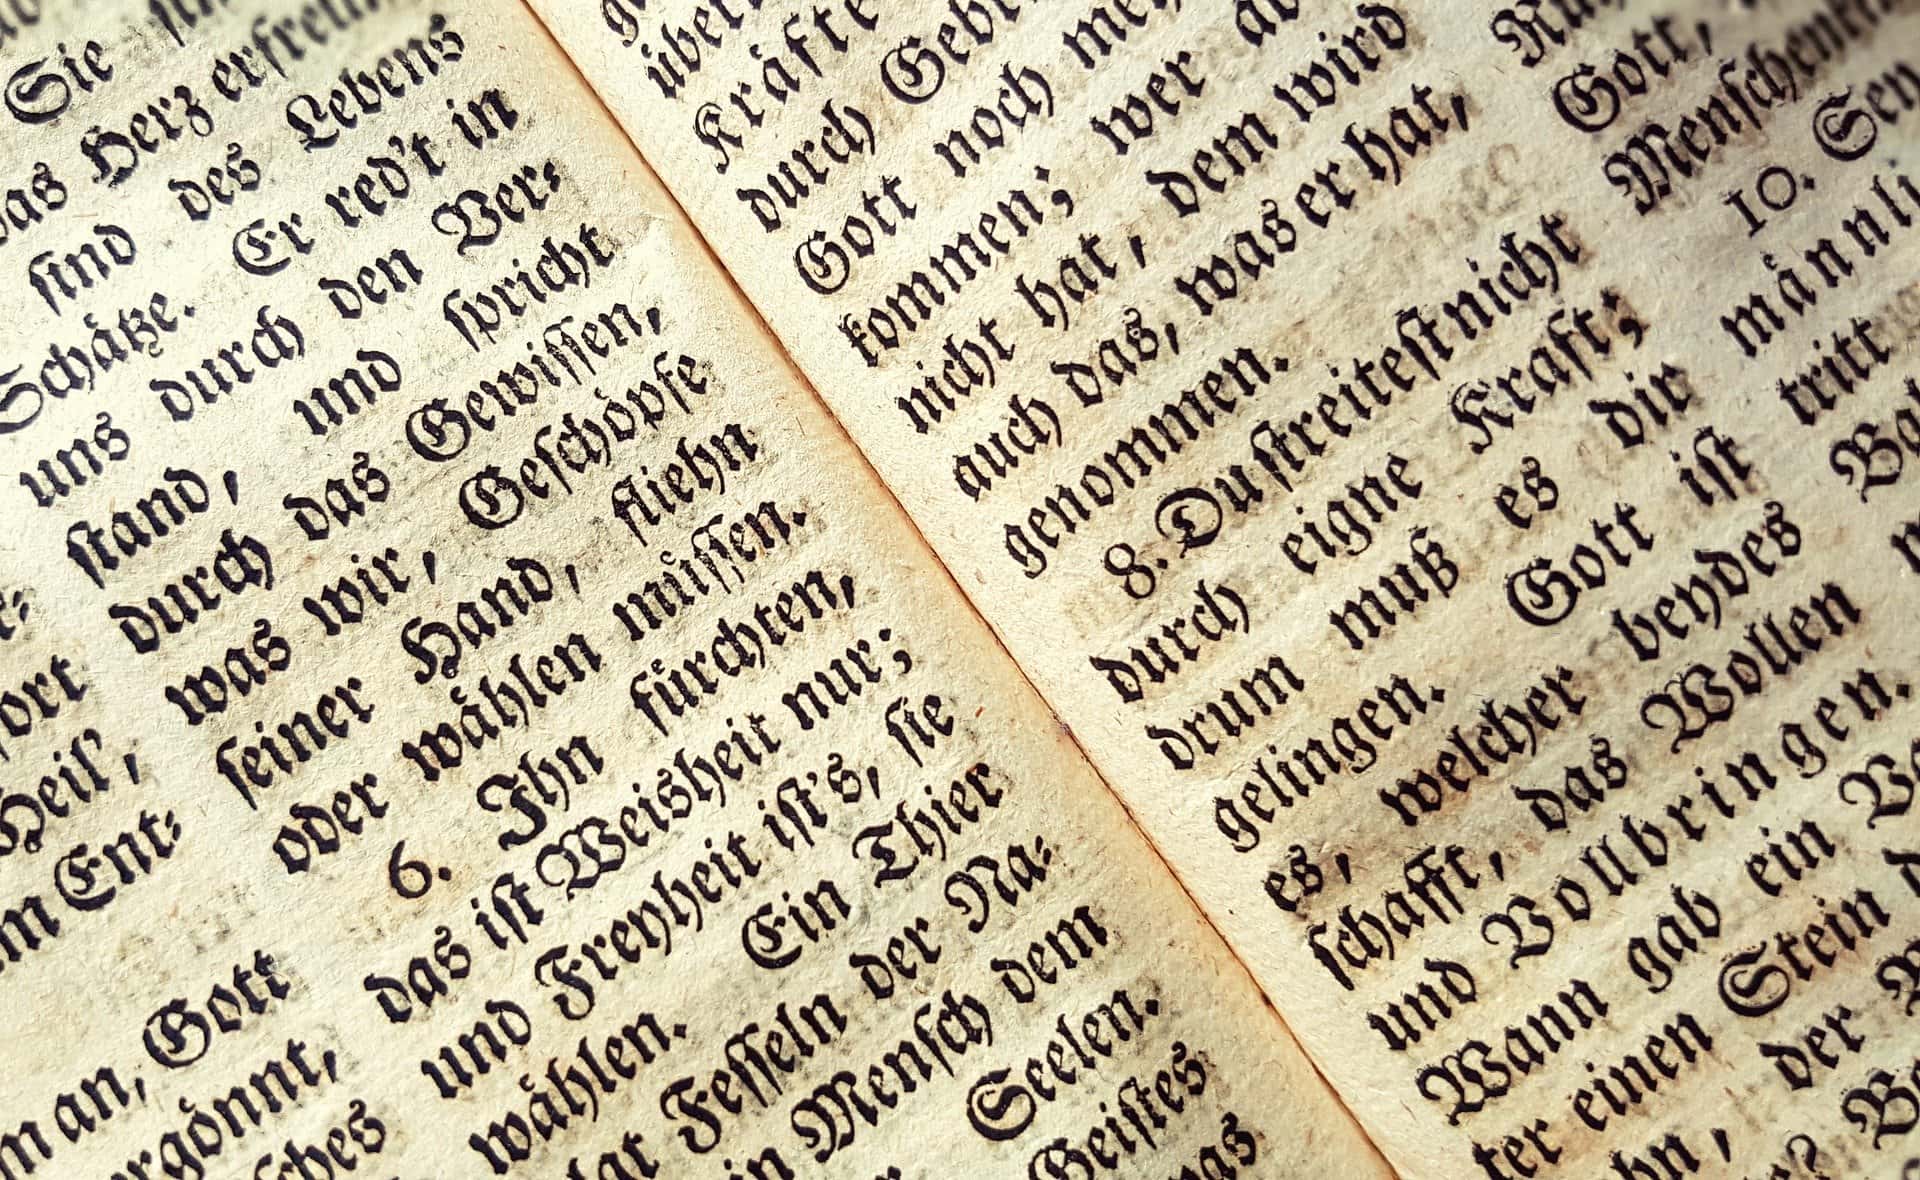 Heil',
m Ent=
an, Gott
Sie
das Herz
ſind des Lebens
Schätze. Er red't in
uns durch den Ver=
ſtand, und ſpricht
durch das Gewiſſen,
was wir, Geſchöpfe
ſeiner Hand, fliehn
oder wählen müſſen.
6. Ihn fürchten,
das iſt Weisheit nur;
und Freyheit iſt's, ſie
wählen. Ein Thier
hat Feſſeln der Na=
Menſch dem
Seelen.
Geiſtes
Kräfte
durch
Gott noch
kommen; wer
nicht hat, dem wird
auch das, was er hat,
genommen.
8. Du ſtreiteſt nicht
durch eigne Kraft;
drum muß es dir
gelingen. Gott iſt
es, welcher beydes
ſchafft, das Wollen
und Vollbringen.
Wann gab ein
ter einen Stein
der
Gott,
10.
männli
tritt